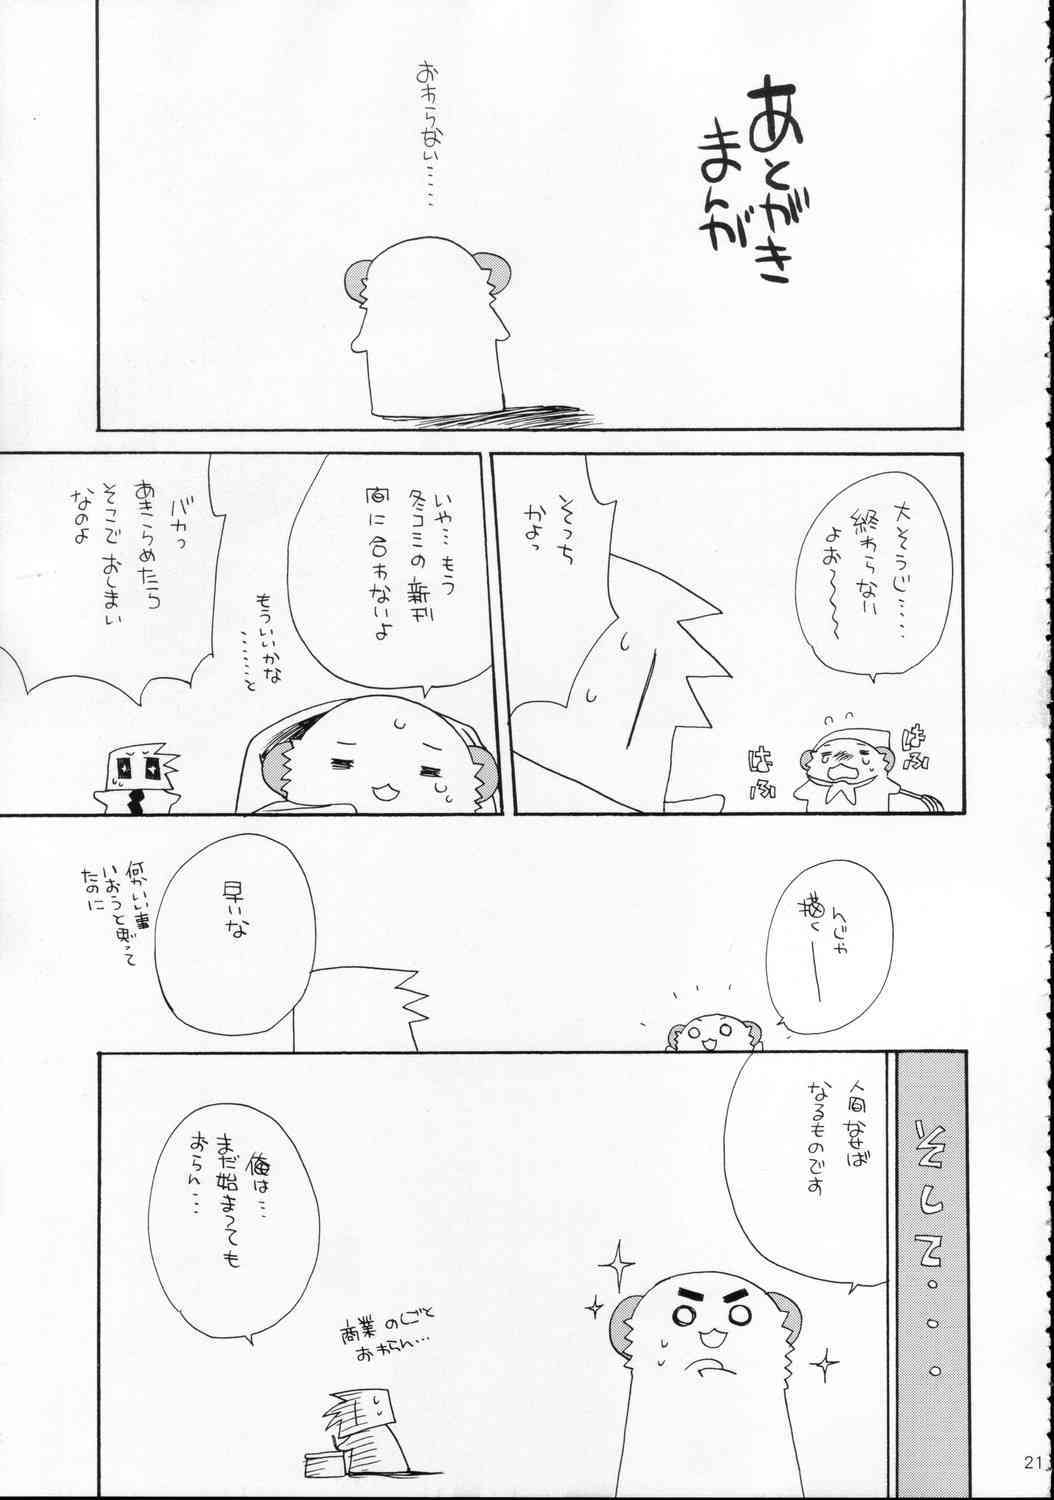 あとがき
まんが
おわらない……
大そうじ……
終わらない
よお〜〜〜
はふ
はふ
そっち
かよっ
いや…もう
冬コミの新刊
間に合わないよ
もういいかな
……と
バカっ
あきらめたら
そこでおしまい
なのよ
んじゃ
描くー
早いな
何かいい事
いおうと思って
たのに
そして・・・・
人間なせば
なるものです
俺は…
まだ始まっても
おらん…
商業のしごと
おわらん…
21